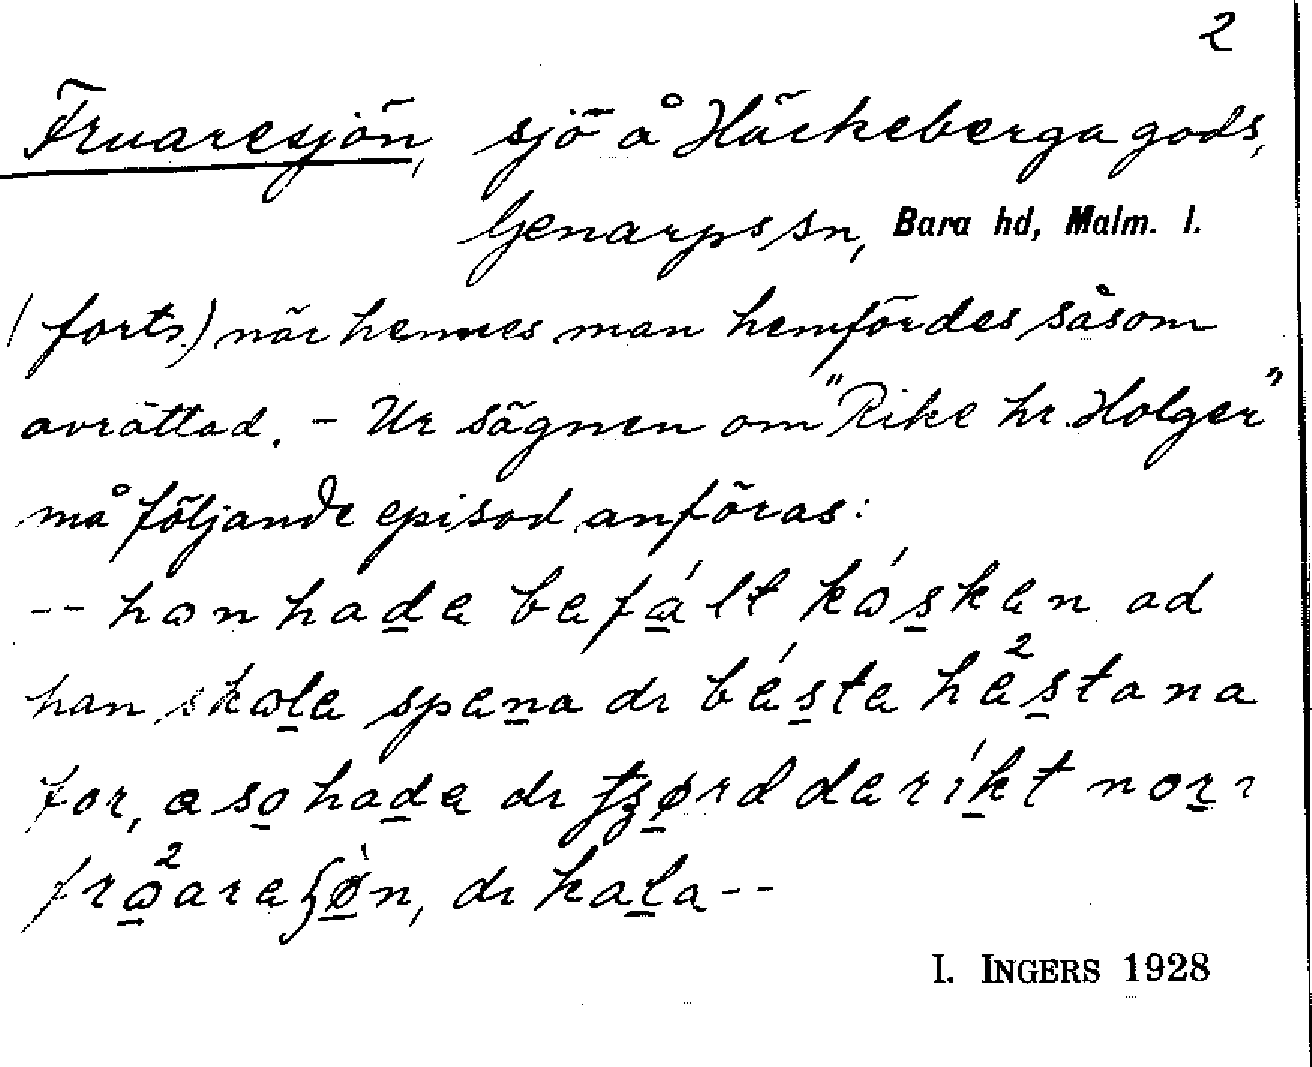 2
Fruaresjön, sjö å Häckeberga gods,
Genarps sn, Bara hd, Malm. l.
(forts.) när hennes man hemfördes såsom
avrättad. - Ur sägnen om "Rike hr. Holger"
må följande episod anföras:
-- han hade befált kósken ad
han skole spena di bésta hästana
for, a so hade di ʃʒørd de ríkt nori
froareʃøn, di kala --
I. INGERS 1928